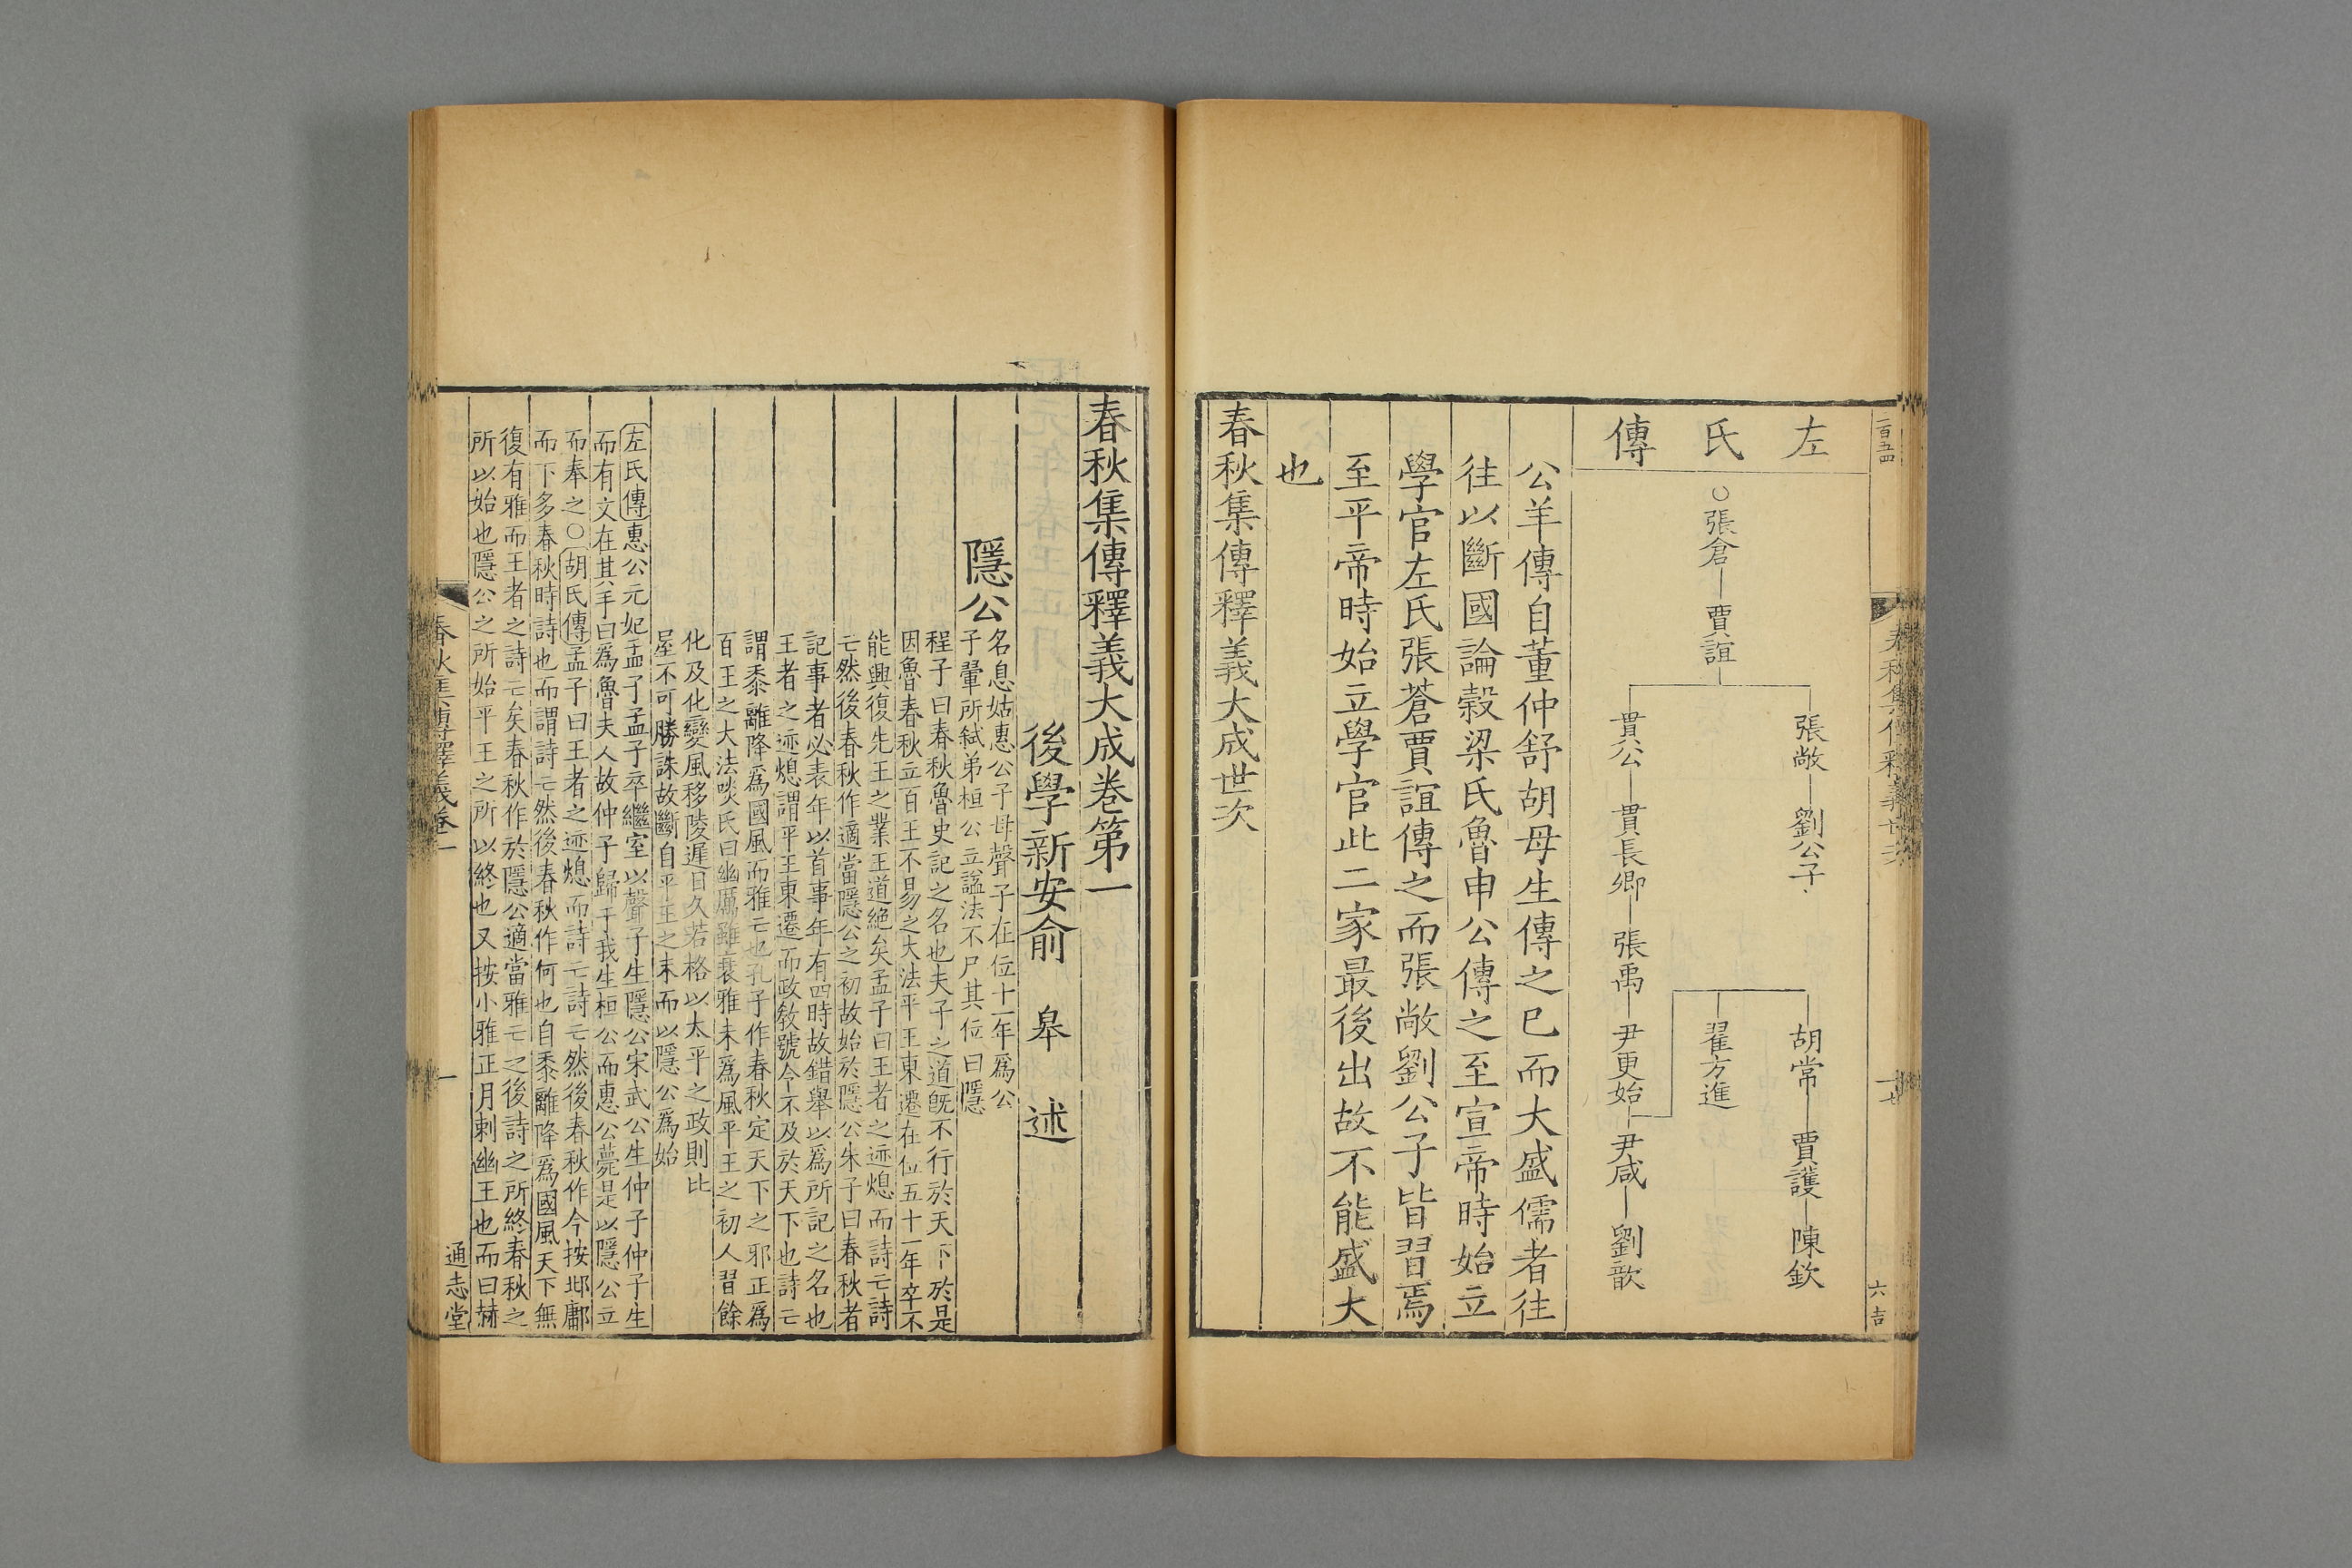 二百五四
春秋集傳釋義世次
六吉
左氏傳
○張倉―賈誼
張敞―劉公子
貫公―貫長卿―張禹―尹更始―尹咸―劉歆
胡常―賈護―陳欽
翟方進
公羊傳自董仲舒胡母生傳之已而大盛儒者往
往以斷國論穀梁氏魯申公傳之至宣帝時始立
學官左氏張蒼賈誼傳之而張敞劉公子皆習焉
至平帝時始立學官此二家最後出故不能盛大
也
春秋集傳釋義大成世次
春秋集傳釋義大成卷第一
後學新安俞 皋 述
隱公
名息姑惠公子母聲子在位十一年爲公
子翬所弑弟桓公立諡法不尸其位曰隱
程子曰春秋魯史記之名也夫子之道旣不行於天下於是
因魯春秋立百王不易之大法平王東遷在位五十一年卒不
能興復先王之業王道絕矣孟子曰王者之迹熄而詩亡詩
亡然後春秋作適當隱公之初故始於隱公朱子曰春秋者
記事者必表年以首事年有四時故錯舉以爲所記之名也
王者之迹熄謂平王東遷而政敎號令不及於天下也詩亡
謂黍離降爲國風而雅亡也孔子作春秋定天下之邪正爲
百王之大法啖氏曰幽厲雖衰雅未爲風平王之初人習餘
化及化變風移陵遲日久若格以太平之政則比
屋不可勝誅故斷自平王之末而以隱公爲始
左氏傳惠公元妃孟子孟子卒繼室以聲子生隱公宋武公生仲子仲子生
而有文在其手曰爲魯夫人故仲子歸于我生桓公而惠公薨是以隱公立
而奉之○胡氏傳孟子曰王者之迹熄而詩亡詩亡然後春秋作今按邶鄘
而下多春秋時詩也而謂詩亡然後春秋作何也自黍離降爲國風天下無
復有雅而王者之詩亡矣春秋作於隱公適當雅亡之後詩之所終春秋之
所以始也隱公之所始平王之所以終也又按小雅正月刺幽王也而曰赫
春秋集傳釋義卷一
一
通志堂